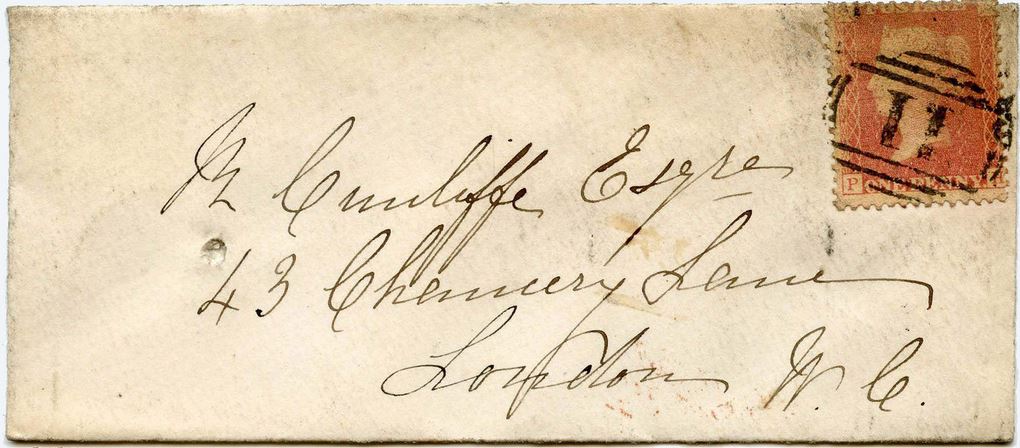 R Cunliffe Esqre
43 Chancery Lane
London W. C.
ONE PENNY
P